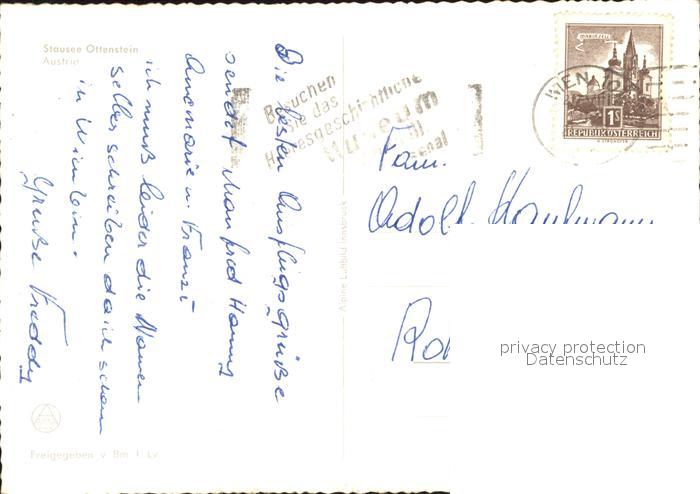 Stausee Ottenstein
Austria
Die besten Ausflugsgrüße
sendet Manfred Hanny
Annemarie u. Franzi
ich muß leider die Namen
selber schreiben da ich schon
in Wien bin.
Grüße Freddy
Freigegeben v. Bm. f. Lv.
Alpine Luftbild Innsbruck
Besuchen
Sie das
Heeresgeschichtliche
Museum
MARIAZELL
1S
REPUBLIK ÖSTERREICH
WIEN
Fam.
Adolf
privacy protection
Datenschutz